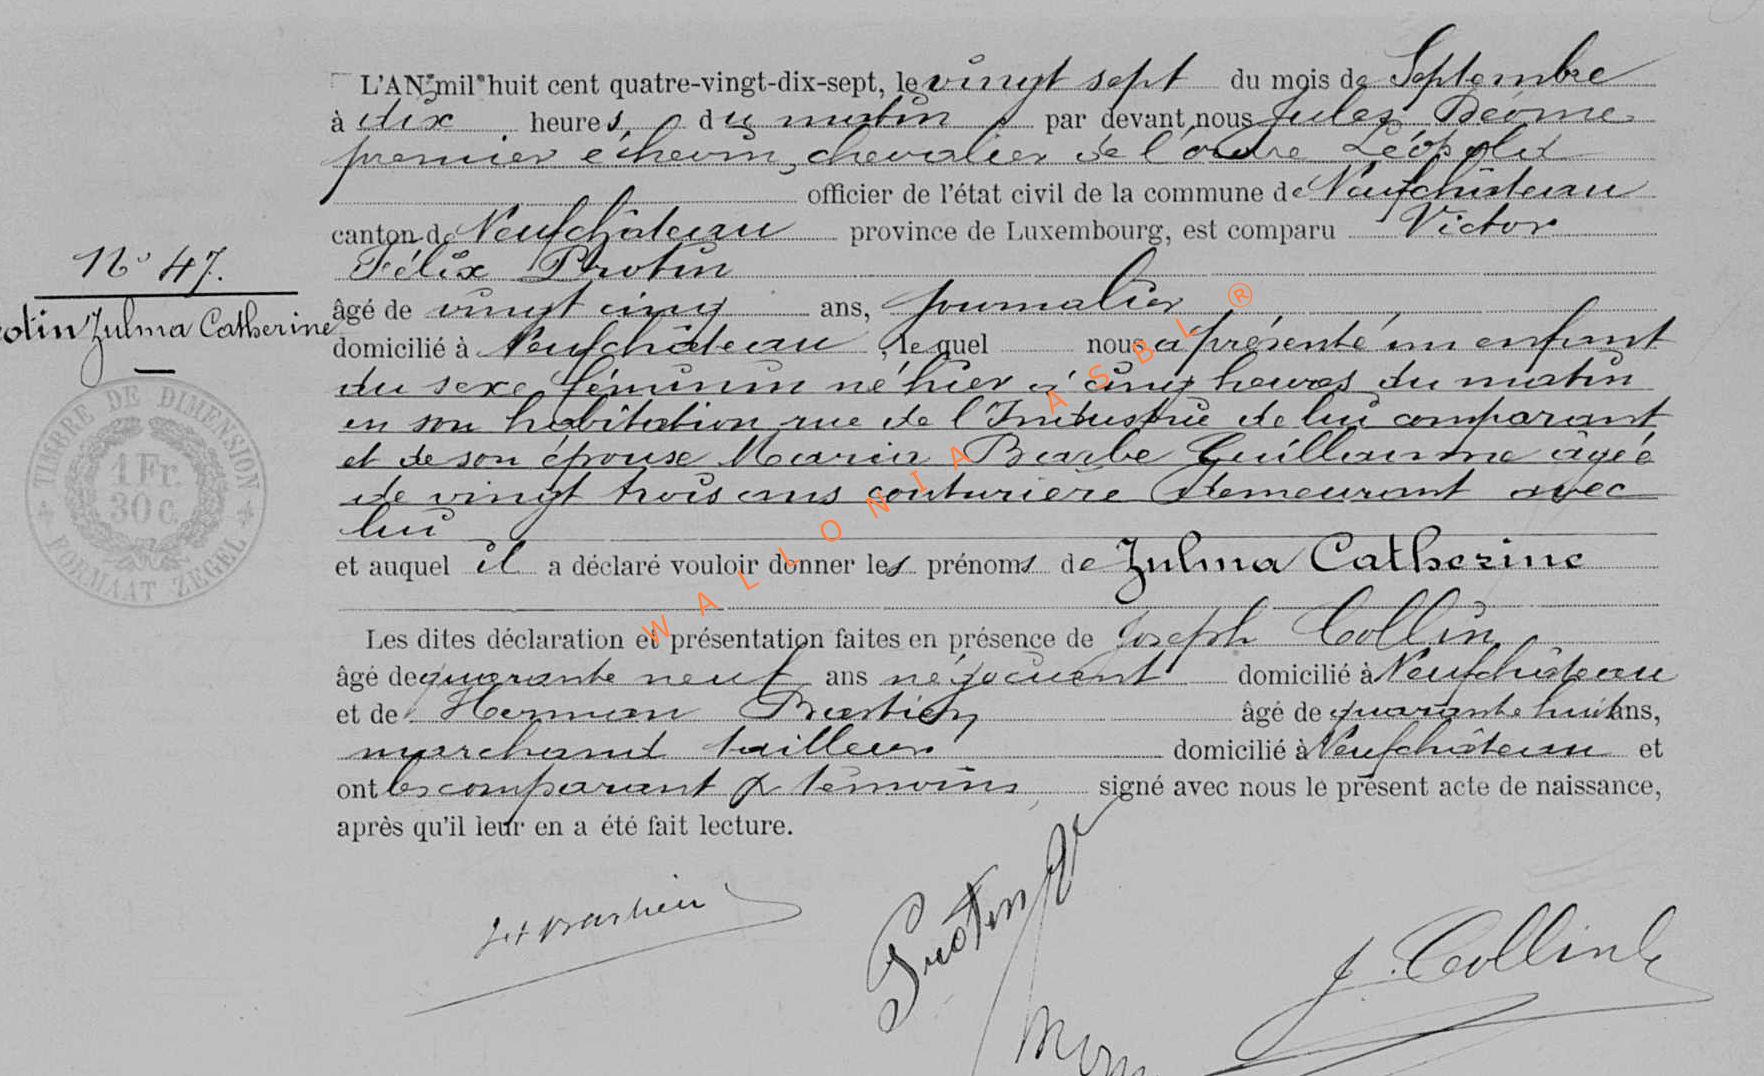 L'AN mil huit cent quatre-vingt-dix-sept, le vingt sept du mois de Septembre
à dix heures du matin par devant nous Jules Déome
premier échevin, chevalier de l'ordre Léopold
officier de l'état civil de la commune de Neufchâteau
canton de Neufchâteau province de Luxembourg, est comparu Victor
Félix Protin
âgé de vingt cinq ans, journalier
domicilié à Neufchâteau, lequel nous a présenté un enfant
du sexe féminin né hier à cinq heures du matin
en son habitation rue de l'Industrie de lui comparant
et de son épouse Maria Barbe Guillaume âgée
de vingt trois ans couturière demeurant avec
lui
et auquel il a déclaré vouloir donner les prénoms de Zulma Catherine
Les dites déclaration et présentation faites en présence de Joseph Collin
âgé de quarante neuf ans négociant domicilié à Neufchâteau
et de Herman Bastien âgé de quarante huit ans,
marchand tailleur domicilié à Neufchâteau et
ont les comparant & témoins signé avec nous le présent acte de naissance,
après qu'il leur en a été fait lecture.
N° 47.
otin Zulma Catherine
TIMBRE DE DIMENSION
1 Fr.
30 c.
FORMAAT ZEGEL
WALLONIA ASBL ®
Bastien
Protin
J. Collin